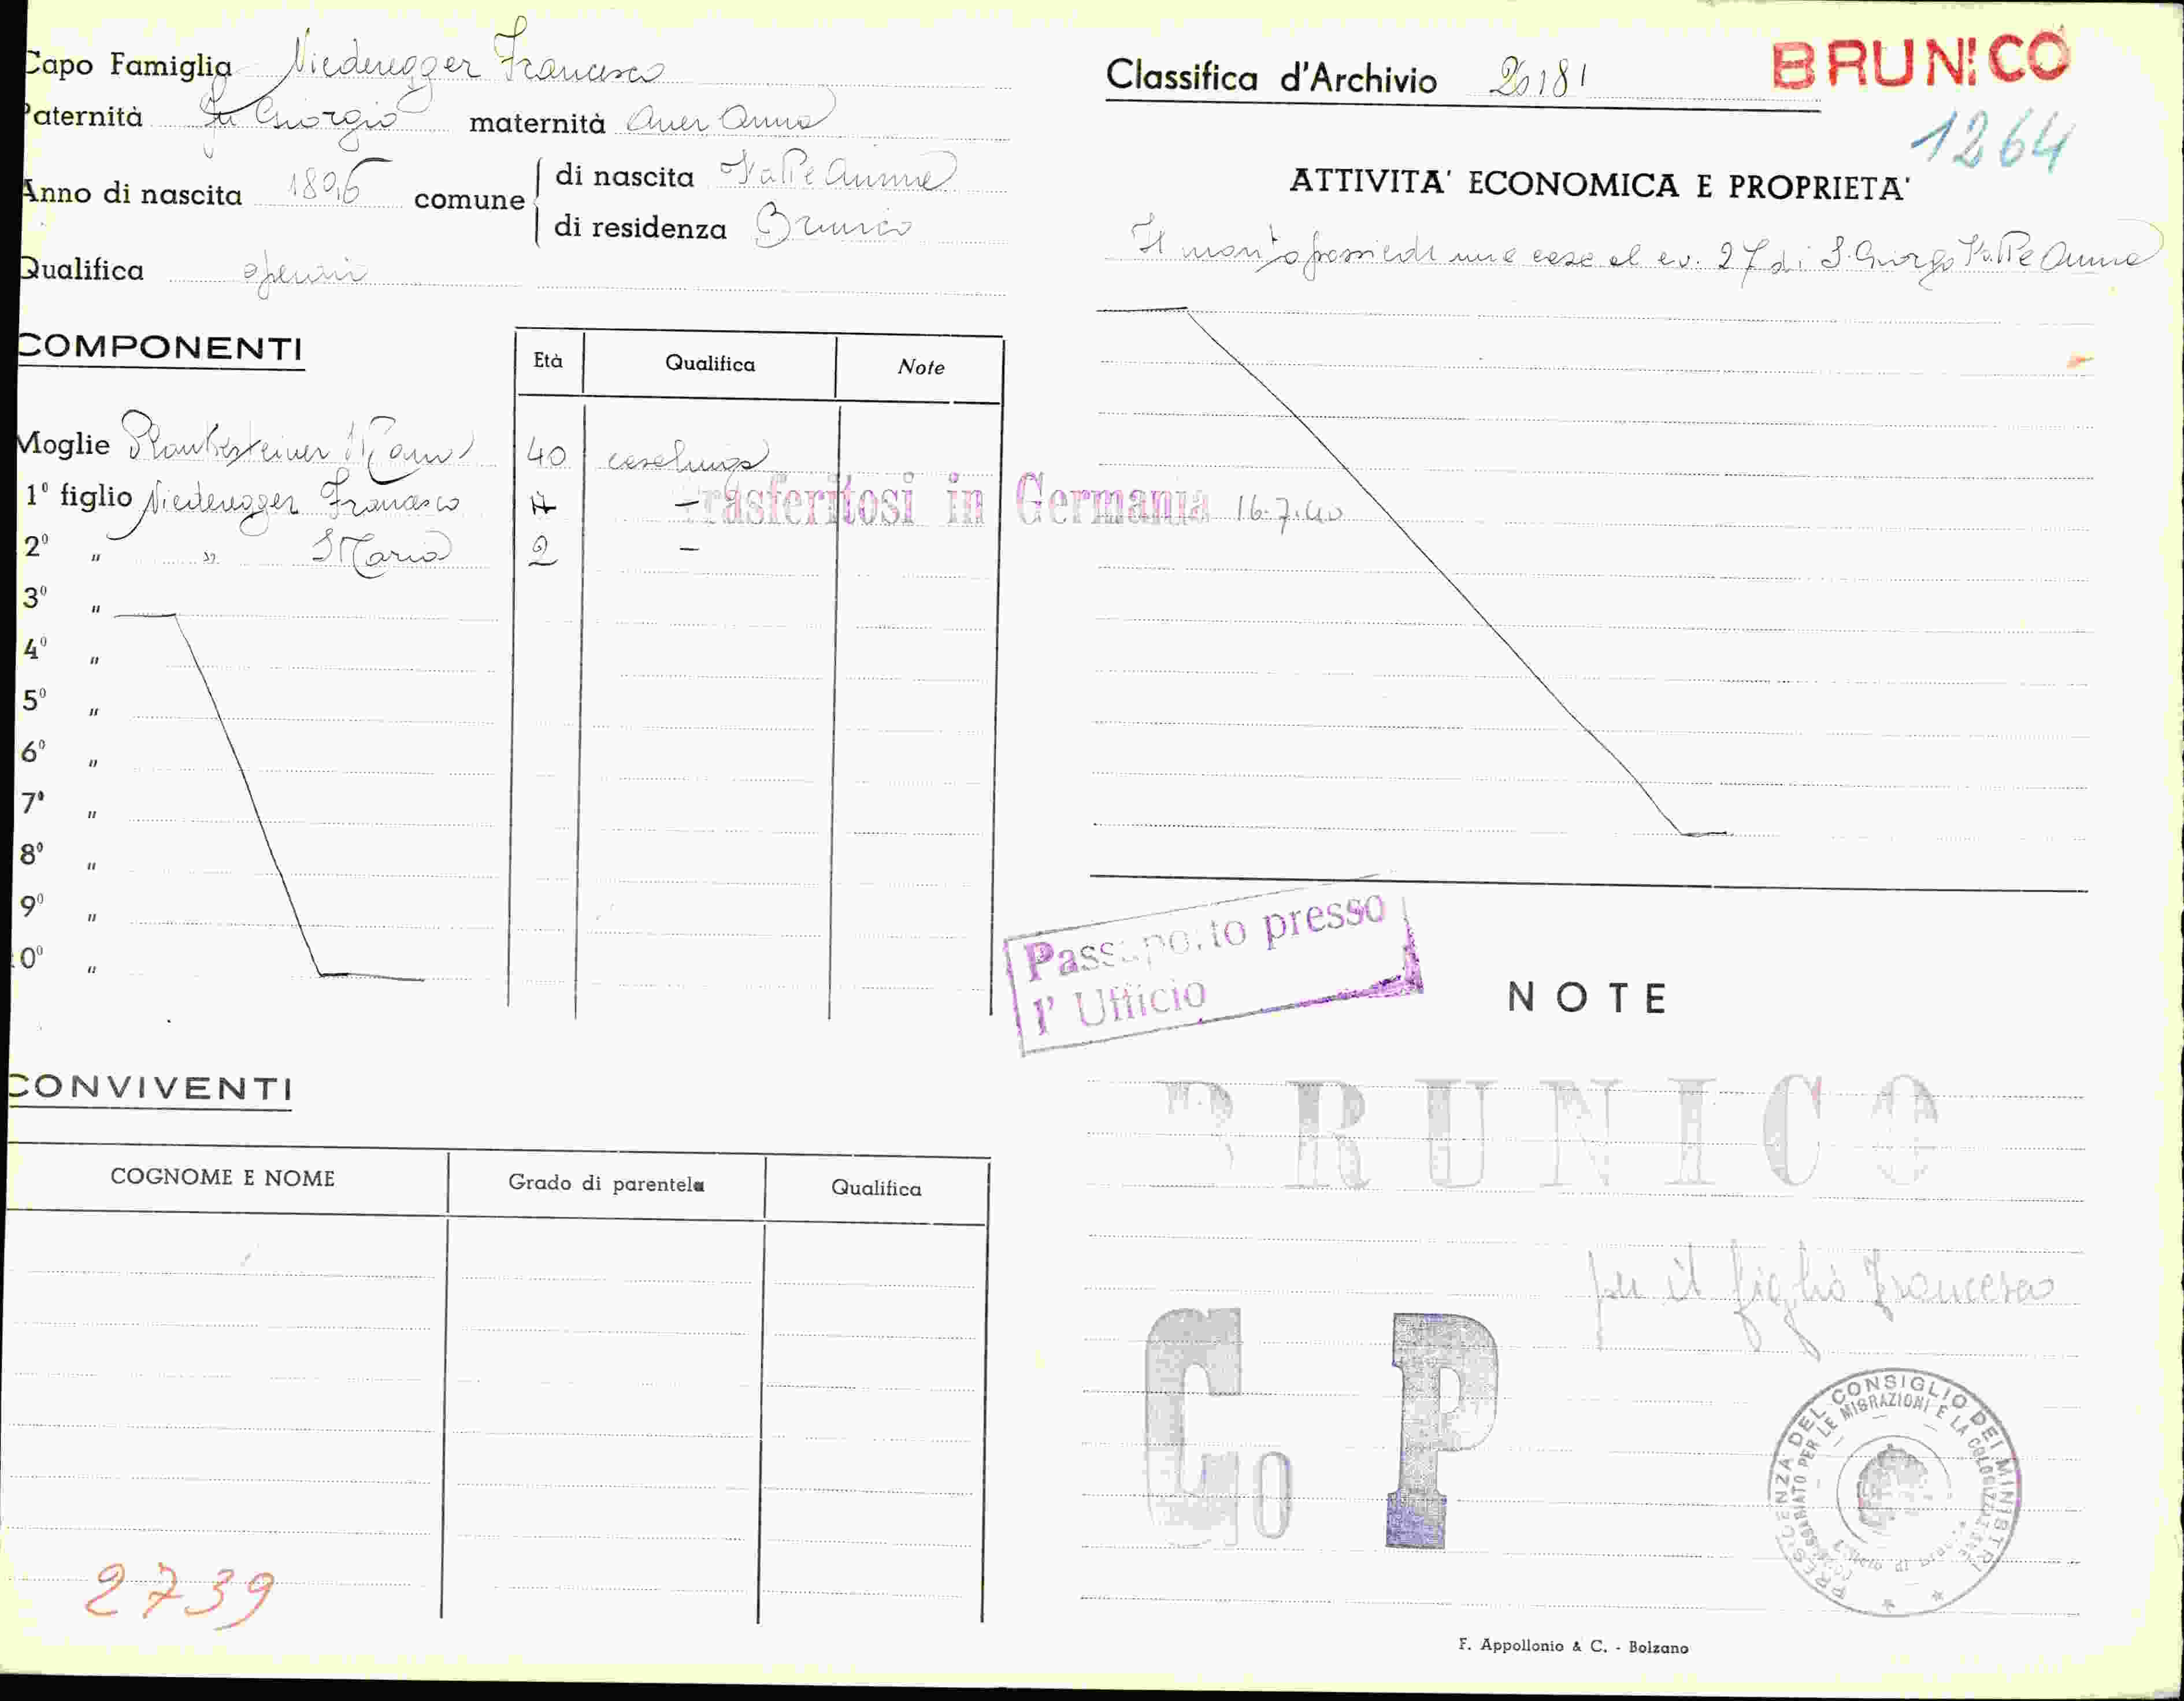 Capo Famiglia Niederegger Francesco
Paternità fu Giorgio maternità Auer Anna
Anno di nascita 1896 comune di nascita Valle Aurina
di residenza Brunico
Qualifica
COMPONENTI
Età Qualifica Note
Moglie 40 casalinga
1º figlio Niederegger Francesco 7 –
2º " " Maria 2 –
Trasferitosi in Germania 16.7.40
3º "
4º "
5º "
6º "
7º "
8º "
9º "
10º "
CONVIVENTI
COGNOME E NOME Grado di parentela Qualifica
2739
Classifica d'Archivio 26181
BRUNICO
1264
ATTIVITA' ECONOMICA E PROPRIETA'
Il marito possiede una casa al cv. 27 di S. Giorgio Valle Aurina
Passaporto presso
l' Ufficio
NOTE
BRUNICO
per il figlio Francesco
Go P
PRESIDENZA DEL CONSIGLIO DEI MINISTRI
COMMISSARIATO PER LE MIGRAZIONI E LA COLONIZZAZIONE
F. Appollonio & C. - Bolzano